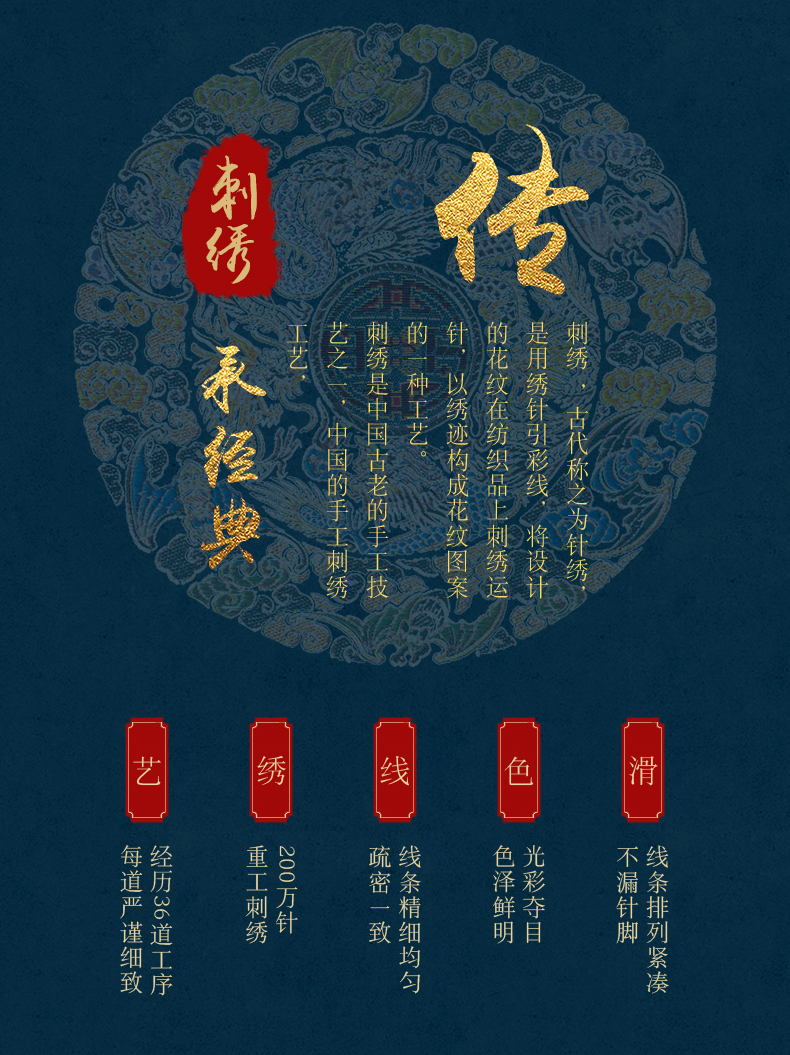 传
刺绣，古代称之为针绣，
是用绣针引彩线，将设计
的花纹在纺织品上刺绣运
针，以绣迹构成花纹图案
的一种工艺。
刺绣是中国古老的手工技
艺之一，中国的手工刺绣
工艺，
刺绣
承经典
滑
线条排列紧凑
不漏针脚
色
光彩夺目
色泽鲜明
线
线条精细均匀
疏密一致
绣
200万针
重工刺绣
艺
经历36道工序
每道严谨细致